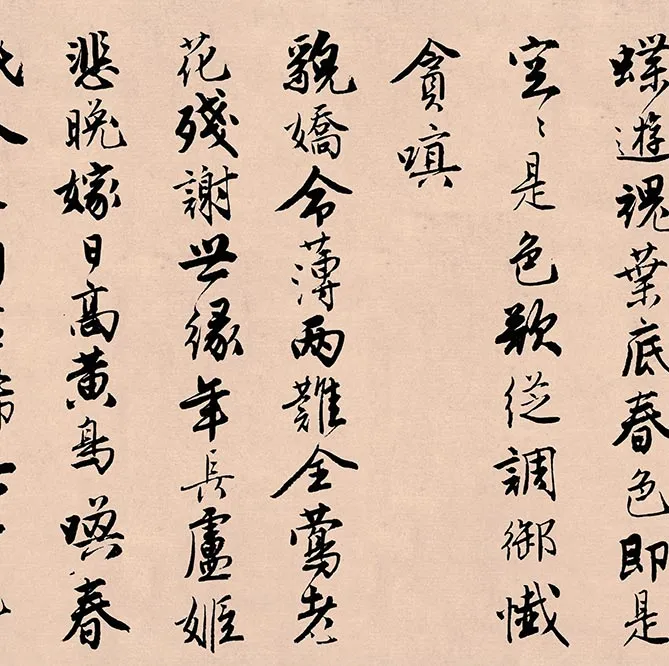 蝶遊魂葉底春色即是
空〻是色欲從調御懺
貪嗔
貌嬌命薄两難全鶯老
花殘謝世緣年長盧姬
悲晚嫁日高黃鳥喚春